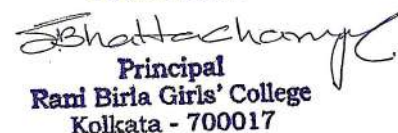 S.Bhattacharyya
Principal
Rani Birla Girls' College
Kolkata - 700017